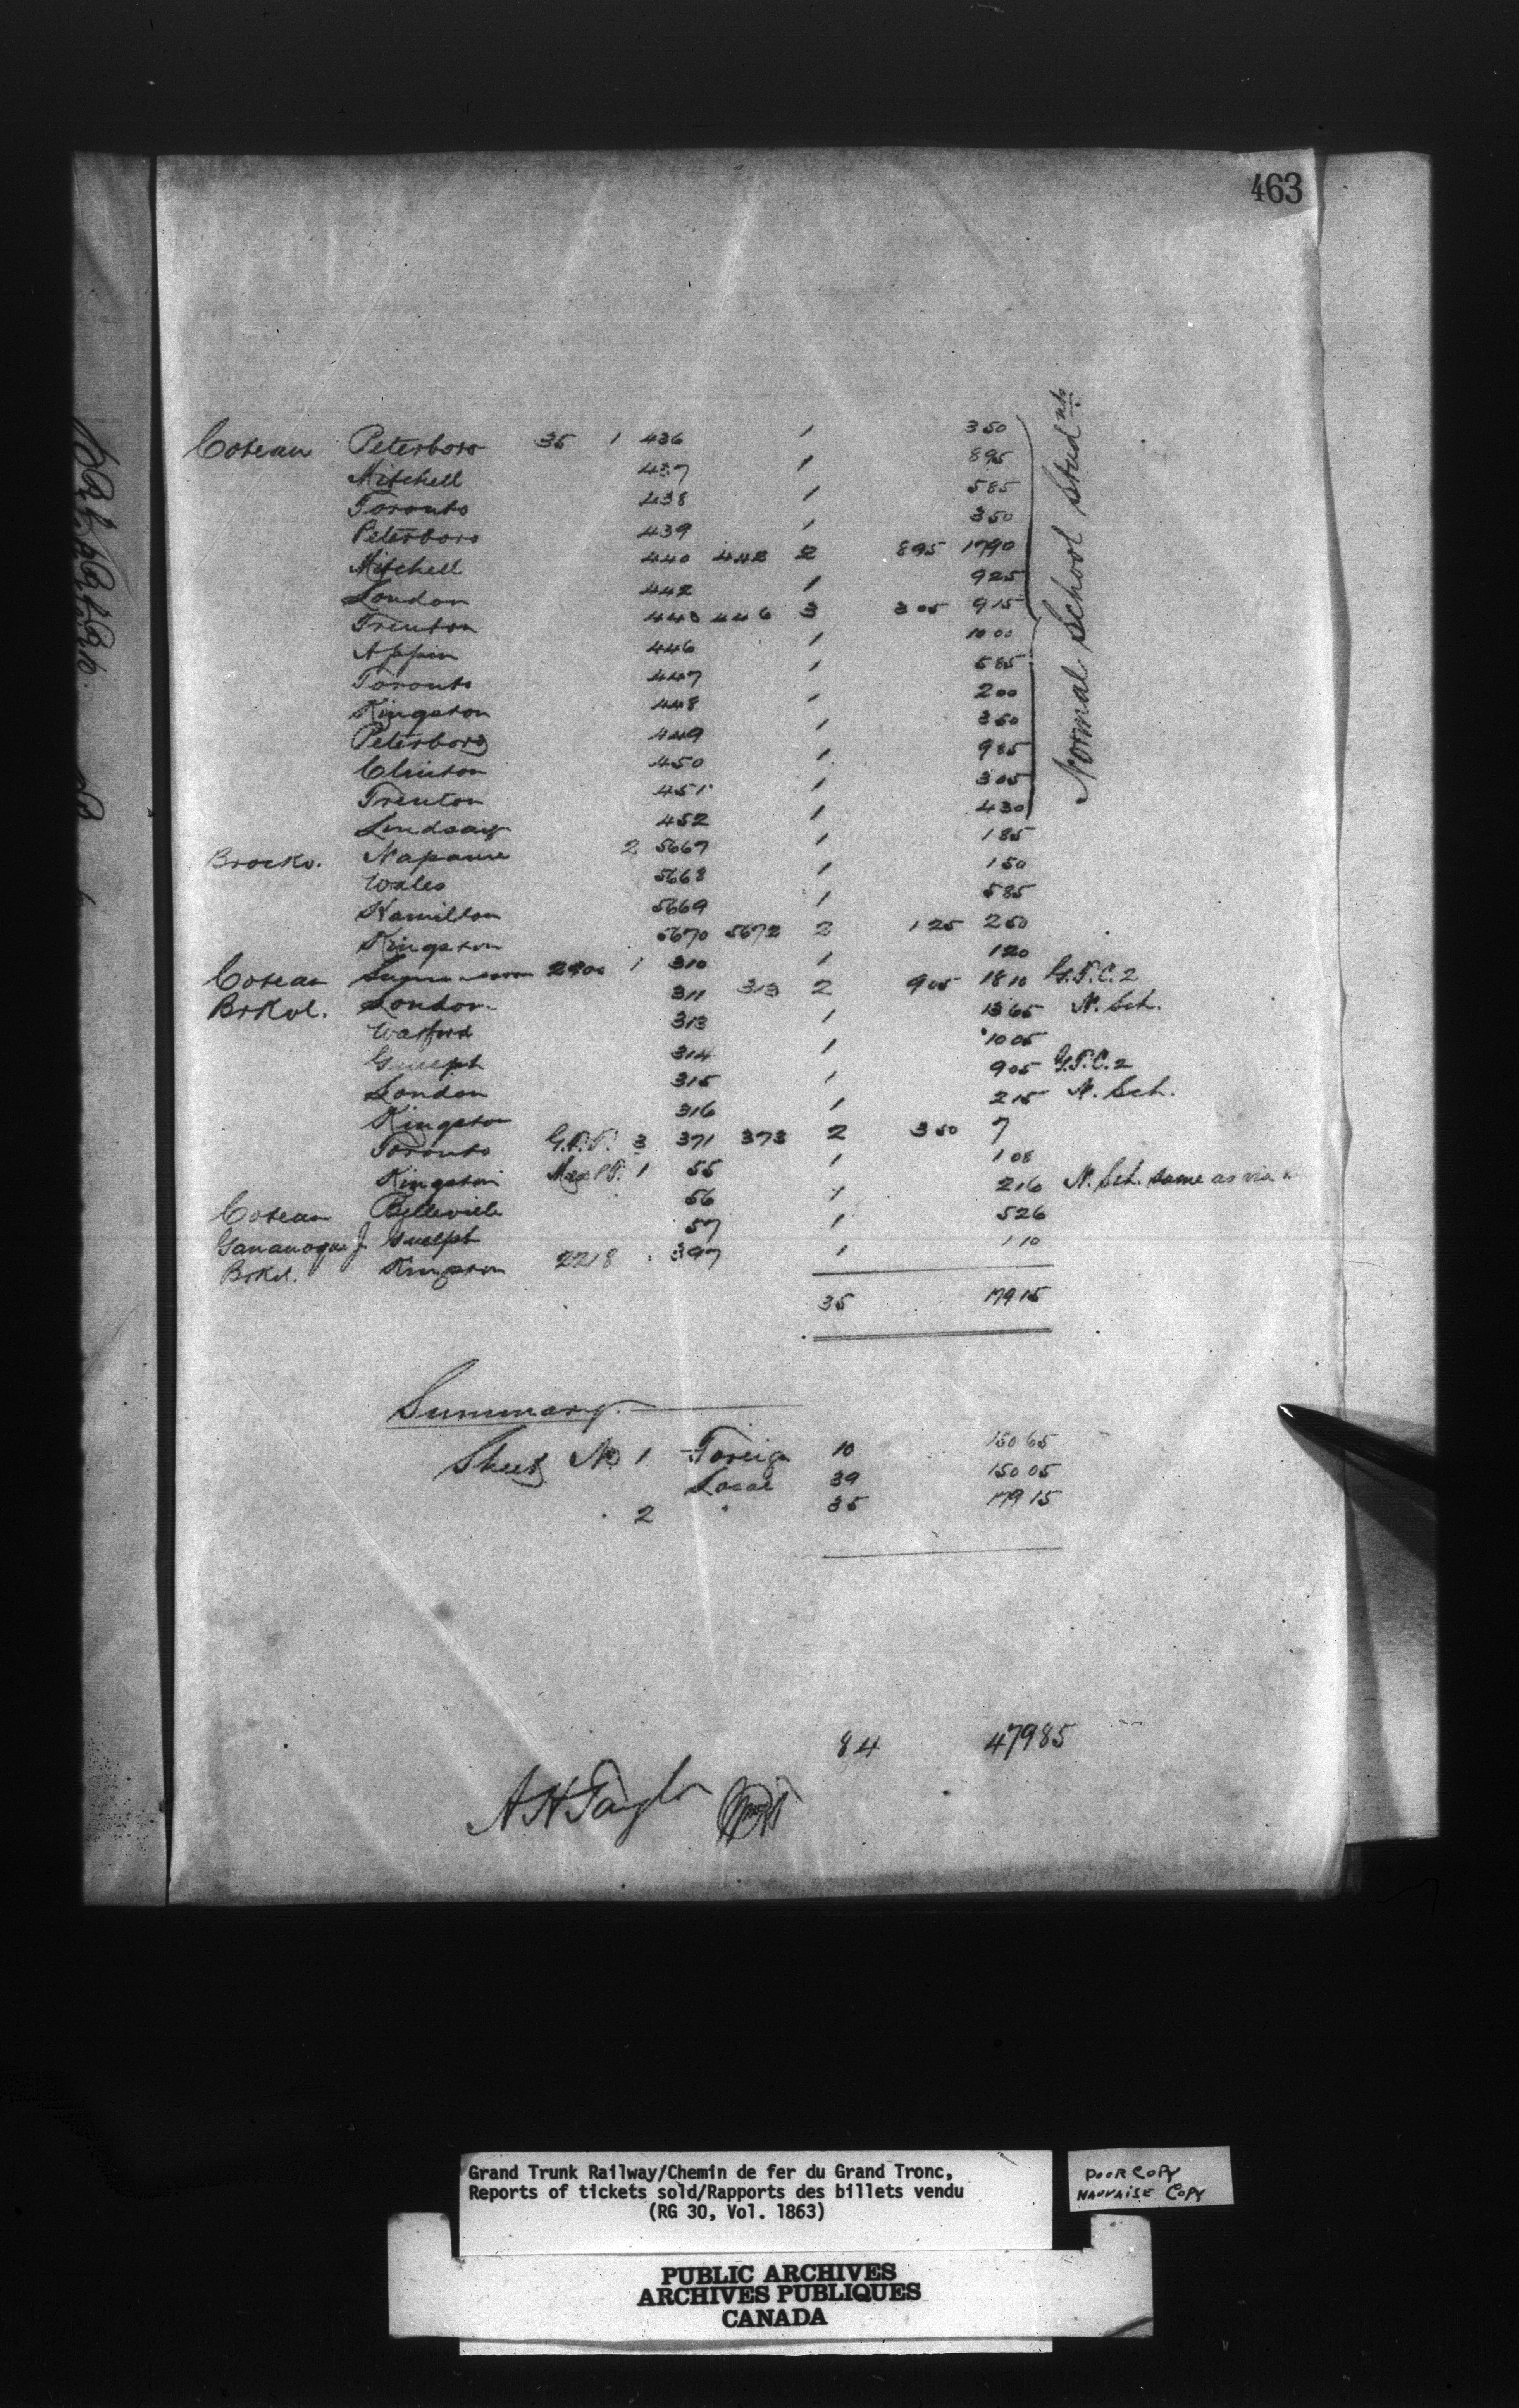 463
Coteau Peterboro 35 1 436 1 350
Mitchell 437 1 895
Toronto 438 1 585
Peterboro 439 1 350
Mitchell 440 442 2 895 1790
London 442 1 925
Trenton 443 446 3 305 915
Appin 446 1 1000
Toronto 447 1 585
Kingston 448 1 200
Peterboro 449 1 350
Clinton 450 1 985
Trenton 451 1 305
Lindsay 452 1 430
Normal School Students
Brockv. Napanee 2 5667 1 185
Wales 5668 1 150
Hamilton 5669 1 585
Kingston 5670 5672 2 125 250
Coteau 1 310 1 120
Brkvl. London 311 313 2 905 1810 G.T.C. 2
Watford 313 1 1365 N. Sch.
Guelph 314 1 1005
London 315 1 905 G.T.C. 2
Kingston 316 1 215 N. Sch.
Toronto 3 371 373 2 350 7
Kingston 1 55 1 108
Coteau Belleville 56 1 216 N. Sch. same as via
Gananoque J Guelph 57 1 526
Brkvl. Kingston 2218 397 1 110
35 17915
Summary.
Sheet No 1 Foreign 10 15065
Local 39 15005
2 " 35 17915
84 47985
A H Taylor
Grand Trunk Railway/Chemin de fer du Grand Tronc,
Reports of tickets sold/Rapports des billets vendu
(RG 30, Vol. 1863)
POOR COPY
MAUVAISE COPY
PUBLIC ARCHIVES
ARCHIVES PUBLIQUES
CANADA